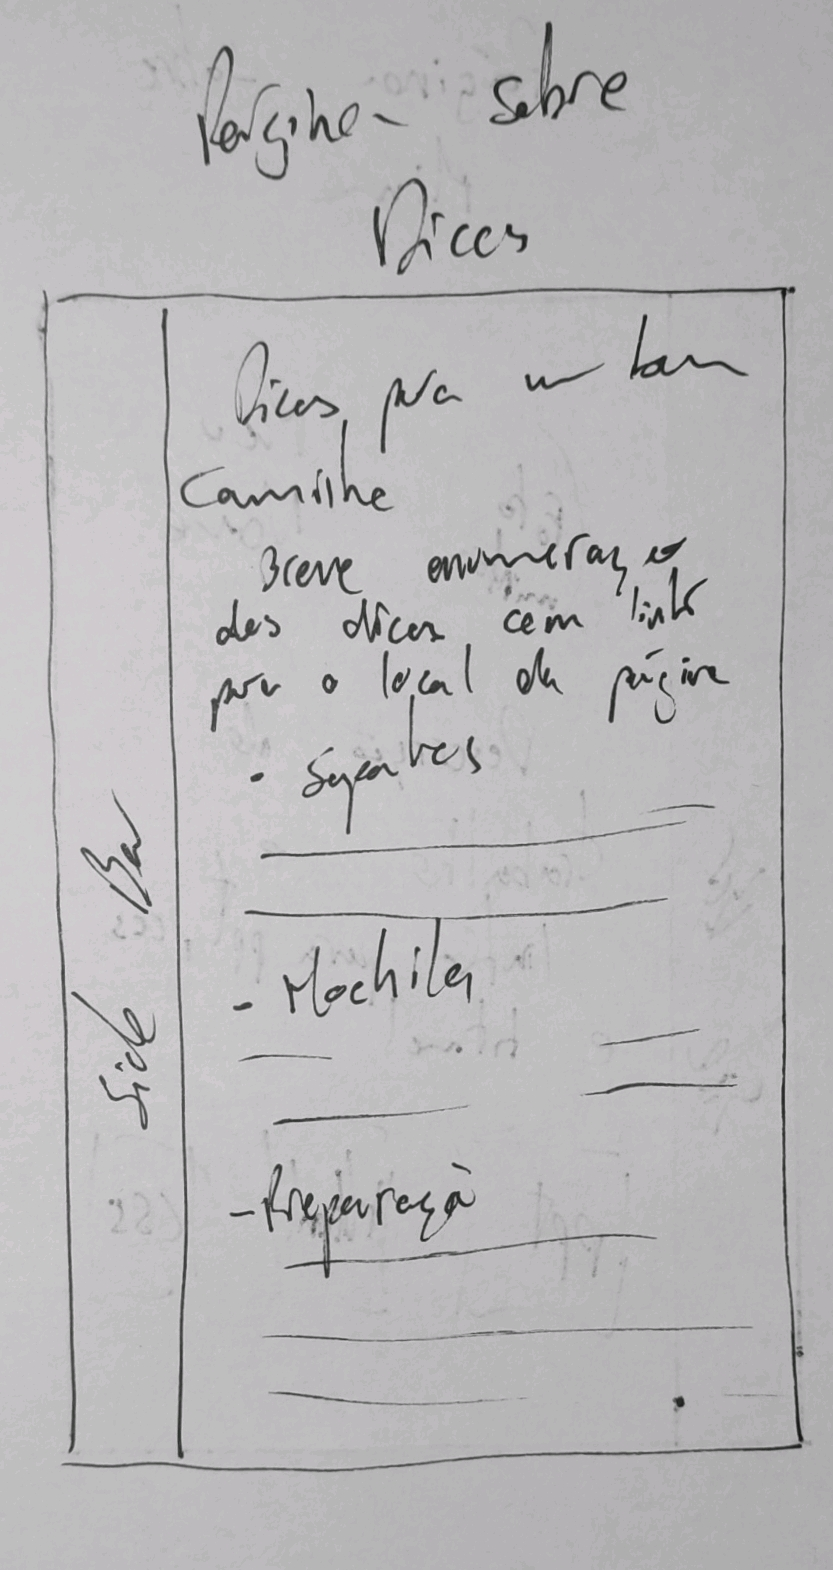 Página sobre
Dicas
Dicas para um bom
Caminho
Breve enumeração
das dicas com links
para o local da página
• Sapatos
- Mochila
- Preparação
Side Bar